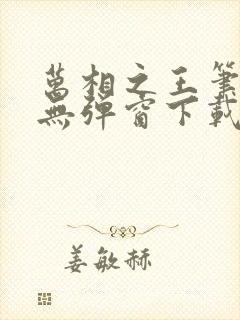 萬相之王筆
無彈窗下載
姜敏赫